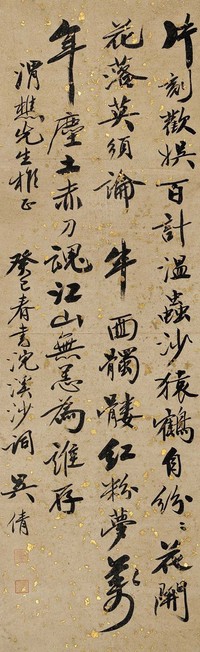 片刻歡娛百計溫蟲沙猿鶴自紛〻花開
花落莫須論 半面髑髏紅粉夢萬
年塵土赤刀魂江山無恙為誰存
渭樵先生雅正 癸巳春書浣溪沙詞 吳倩